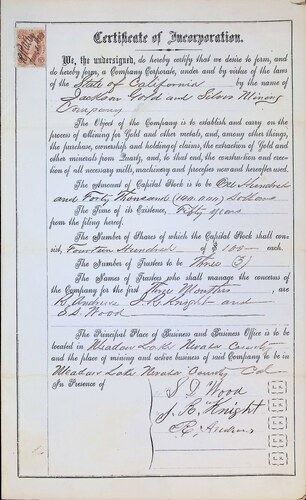 Certificate of Incorporation.
We, the undersigned, do hereby certify that we desire to form, and
do hereby form, a Company Corporate, under and by virtue of the laws
of the State of California by the name of
Jackson Gold and Silver Mining
Company
The Object of the Company is to establish and carry on the
process of Mining for Gold and other metals, and, among other things,
the purchase, ownership and holding of claims, the extraction of Gold and
other minerals from Quartz, and, to that end, the construction and erec-
tion of all necessary mills, machinery and processes used and hereafter used.
The Amount of Capital Stock is to be One Hundred
and Forty Thousand (140.000) Dollars
The Term of its Existence, Fifty years
from the filing hereof.
The Number of Shares of which the Capital Stock shall con-
sist, Fourteen Hundred of $100 each.
The Number of Trustees to be Three (3)
The Names of Trustees who shall manage the concerns
of the Company for the first Three Months, are
B. Andrews J. R. Knight and
S. D. Wood
The Principal Place of Business and Business Office is to be
located in Meadow Lake Nevada County
and the place of mining and active business of said Company to be in
Meadow Lake Nevada County Cal
In Presence of
S D Wood
J. R. Knight
B. Andrews